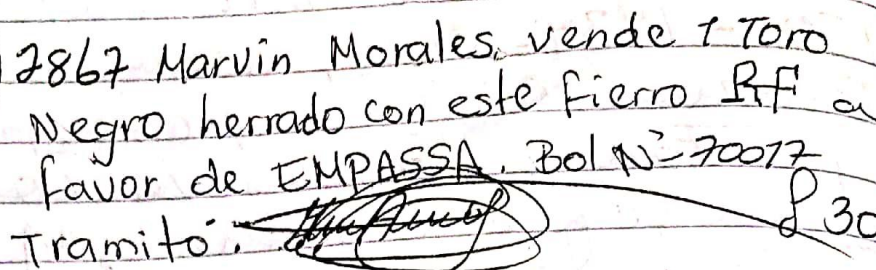 2867 Marvin Morales, vende 1 Toro
Negro herrado con este fierro RF a
favor de EMPASSA. Bol Nº-70017
Tramitó. 30